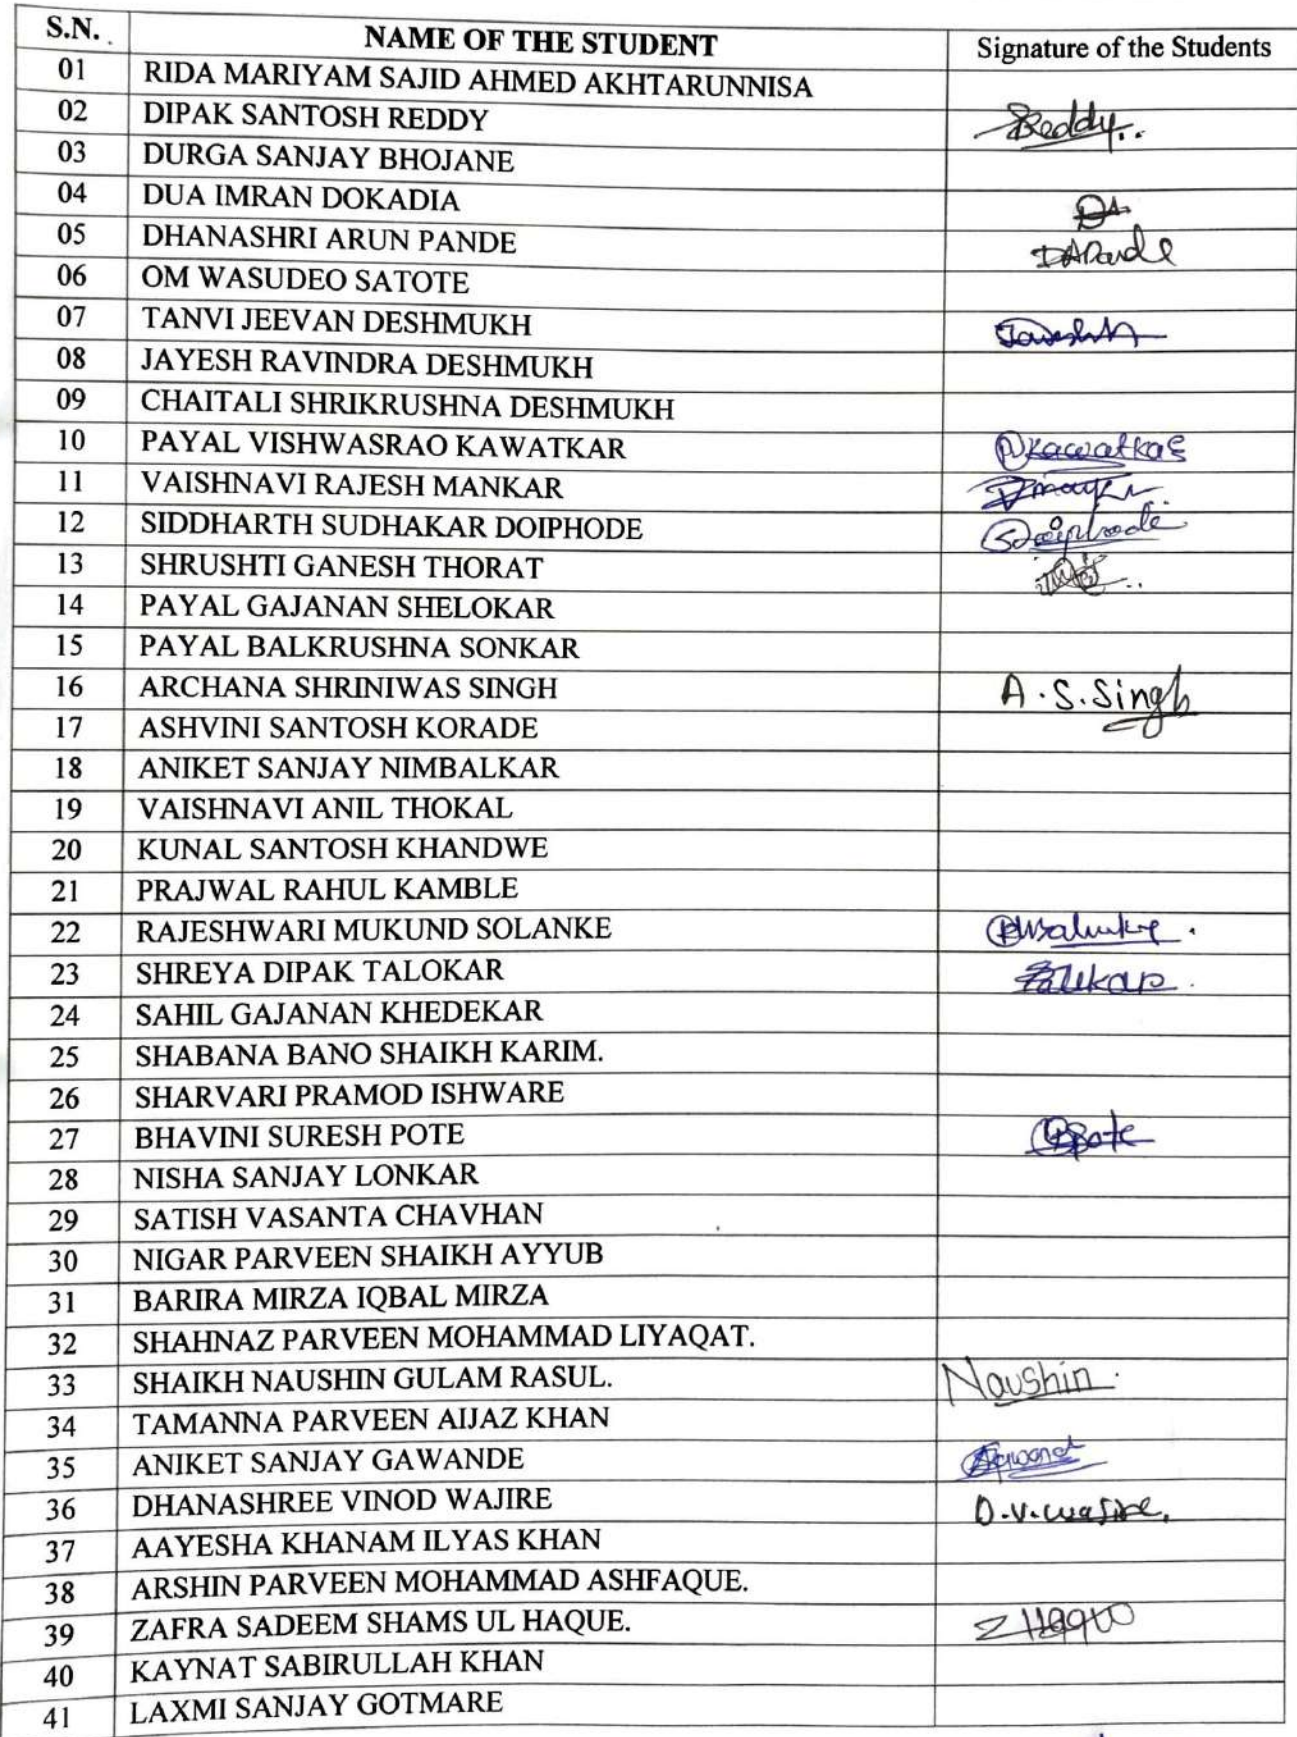 S.N. NAME OF THE STUDENT Signature of the Students
01 RIDA MARIYAM SAJID AHMED AKHTARUNNISA
02 DIPAK SANTOSH REDDY Reddy..
03 DURGA SANJAY BHOJANE
04 DUA IMRAN DOKADIA
05 DHANASHRI ARUN PANDE DAPande
06 OM WASUDEO SATOTE
07 TANVI JEEVAN DESHMUKH
08 JAYESH RAVINDRA DESHMUKH
09 CHAITALI SHRIKRUSHNA DESHMUKH
10 PAYAL VISHWASRAO KAWATKAR PKawatkar
11 VAISHNAVI RAJESH MANKAR
12 SIDDHARTH SUDHAKAR DOIPHODE SDoiphode
13 SHRUSHTI GANESH THORAT
14 PAYAL GAJANAN SHELOKAR
15 PAYAL BALKRUSHNA SONKAR
16 ARCHANA SHRINIWAS SINGH A.S.Singh
17 ASHVINI SANTOSH KORADE
18 ANIKET SANJAY NIMBALKAR
19 VAISHNAVI ANIL THOKAL
20 KUNAL SANTOSH KHANDWE
21 PRAJWAL RAHUL KAMBLE
22 RAJESHWARI MUKUND SOLANKE
23 SHREYA DIPAK TALOKAR
24 SAHIL GAJANAN KHEDEKAR
25 SHABANA BANO SHAIKH KARIM.
26 SHARVARI PRAMOD ISHWARE
27 BHAVINI SURESH POTE BSPote
28 NISHA SANJAY LONKAR
29 SATISH VASANTA CHAVHAN
30 NIGAR PARVEEN SHAIKH AYYUB
31 BARIRA MIRZA IQBAL MIRZA
32 SHAHNAZ PARVEEN MOHAMMAD LIYAQAT.
33 SHAIKH NAUSHIN GULAM RASUL. Naushin.
34 TAMANNA PARVEEN AIJAZ KHAN
35 ANIKET SANJAY GAWANDE
36 DHANASHREE VINOD WAJIRE D.V.wajire.
37 AAYESHA KHANAM ILYAS KHAN
38 ARSHIN PARVEEN MOHAMMAD ASHFAQUE.
39 ZAFRA SADEEM SHAMS UL HAQUE.
40 KAYNAT SABIRULLAH KHAN
41 LAXMI SANJAY GOTMARE